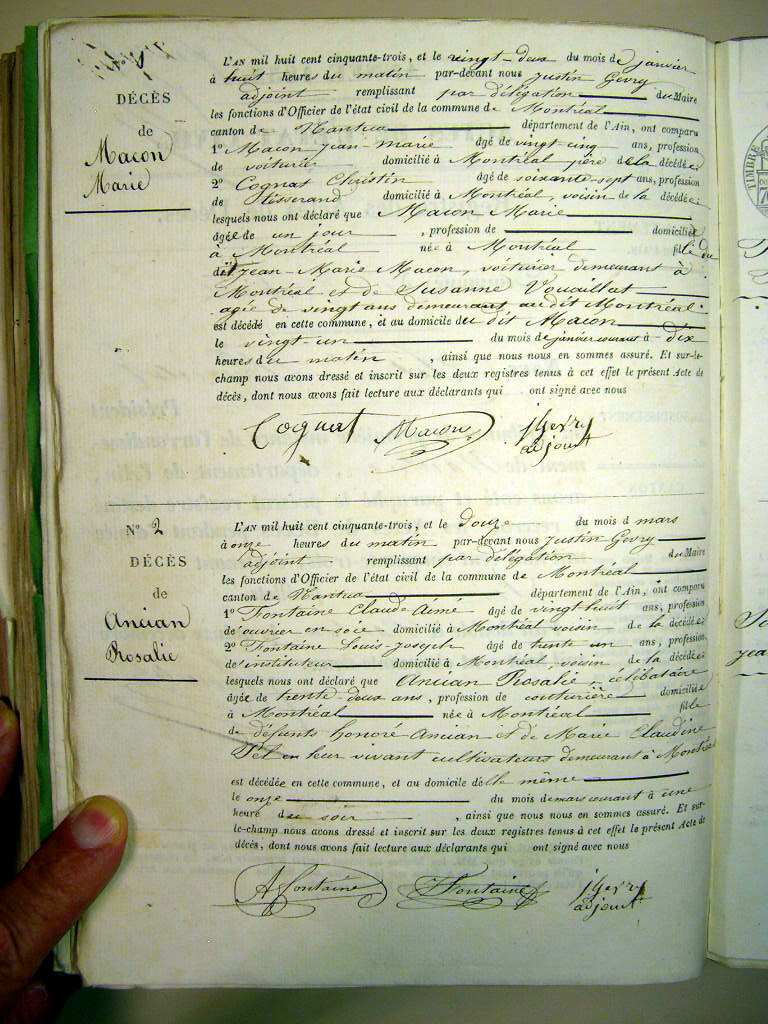 1
DÉCÈS
de
Macon
Marie
L'AN mil huit cent cinquante-trois, et le vingt-deux du mois de janvier
à huit heures du matin par-devant nous Justin Gevry
adjoint remplissant par délégation du Maire
les fonctions d'Officier de l'état civil de la commune de Montréal
canton de Nantua département de l'Ain, ont comparu
1º Macon Jean-marie âgé de vingt cinq ans, profession
de voiturier domicilié à Montréal père de la décédée
2º Cognat Christin âgé de soixante-sept ans, profession
de tisserand domicilié à Montréal, voisin de la décédée
lesquels nous ont déclaré que Macon Marie
âgée de un jour , profession de domiciliée
à Montréal née à Montréal fille du
dit Jean-Marie Macon, voiturier demeurant à
Montréal et de Susanne Vouaillat
agée de vingt ans demeurant au dit Montréal.
est décédé en cette commune, et au domicile du dit Macon
le vingt un du mois de janvier courant à dix
heures du matin , ainsi que nous nous en sommes assuré. Et sur-le-
champ nous avons dressé et inscrit sur les deux registres tenus à cet effet le présent Acte de
décès, dont nous avons fait lecture aux déclarants qui ont signé avec nous
Cognat Macon J Gevry
adjoint
Nº 2
DÉCÈS
de
Ancian
Rosalie
L'AN mil huit cent cinquante-trois, et le douze du mois d mars
à onze heures du matin par-devant nous Justin Gevry
adjoint remplissant par délégation du Maire
les fonctions d'Officier de l'état civil de la commune de Montréal
canton de Nantua département de l'Ain, ont comparu
1º Fontaine Claude Aimé âgé de vingt huit ans, profession
de ouvrier en soie domicilié à Montréal voisin de la décédée
2º Fontaine Louis-Joseph âgé de trente un ans, profession
de instituteur domicilié à Montréal, voisin de la décédée
lesquels nous ont déclaré que Ancian Rosalie, célibataire
âgée de trente deux ans , profession de couturière domiciliée
à Montréal née à Montréal fille
de défunts honoré Ancian et de Marie Claudine
Tét en leur vivant cultivateurs demeurant à Montréal
est décédée en cette commune, et au domicile d'elle même
le onze du mois de mars courant à une
heure du soir , ainsi que nous nous en sommes assuré. Et sur-
le-champ nous avons dressé et inscrit sur les deux registres tenus à cet effet le présent Acte de
décès, dont nous avons fait lecture aux déclarants qui ont signé avec nous
A Fontaine Fontaine J Gevry
adjoint
TIMBRE